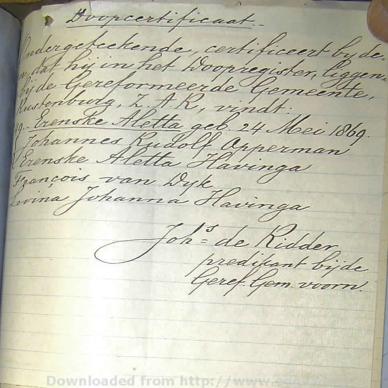 Doopcertificaat.
Ondergeteekende, certificeert bij de-
dat hij in het Doopregister, liggen-
bij de Gereformeerde Gemeente,
Rustenburg, Z.A.R., vindt:
Erenske Aletta geb. 24 Mei 1869.
Johannes Rudolf Opperman
Erenske Aletta Havinga
François van Dyk
Johanna Havinga
Johs de Ridder,
predikant bij de
Geref. Gem. voorn.
Downloaded from http://www.